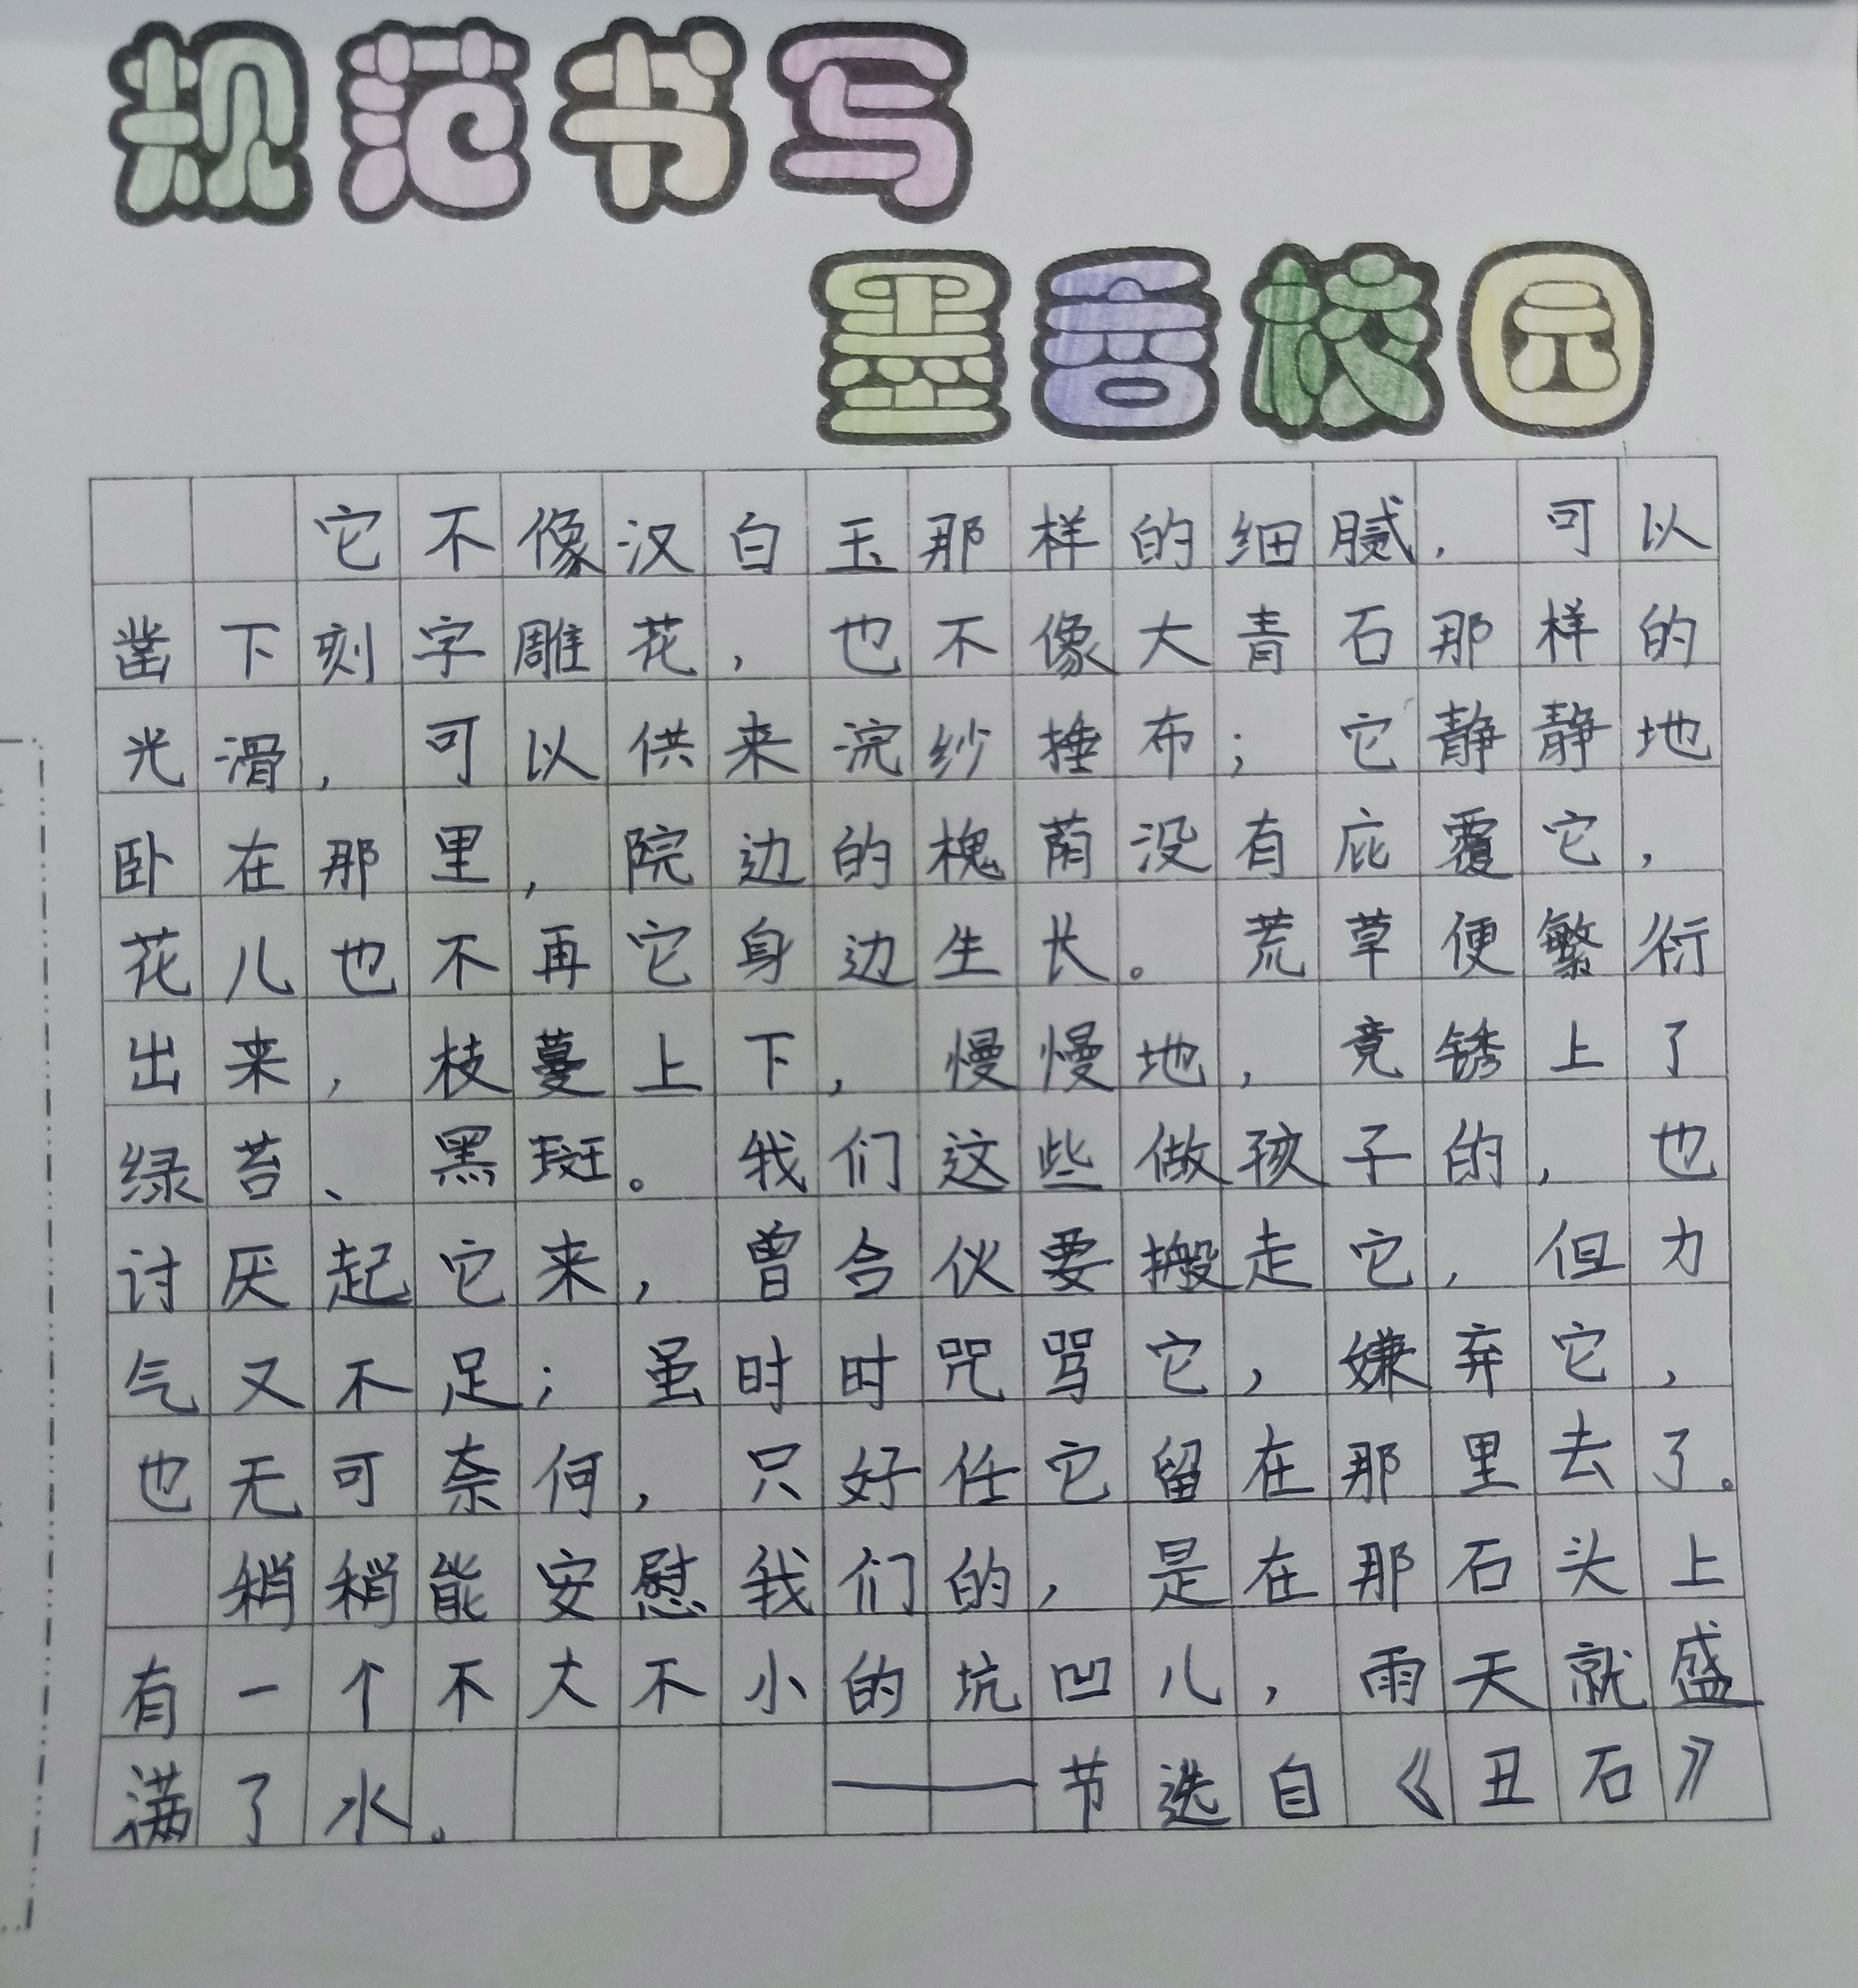 规范书写
墨香校园
它不像汉白玉那样的细腻，可以
凿下刻字雕花，也不像大青石那样的
光滑，可以供来浣纱捶布；它静静地
卧在那里，院边的槐荫没有庇覆它，
花儿也不再它身边生长。荒草便繁衍
出来，枝蔓上下，慢慢地，竟锈上了
绿苔、黑斑。我们这些做孩子的，也
讨厌起它来，曾合伙要搬走它，但力
气又不足；虽时时咒骂它，嫌弃它，
也无可奈何，只好任它留在那里去了。
稍稍能安慰我们的，是在那石头上
有一个不大不小的坑凹儿，雨天就盛
满了水。——节选自《丑石》